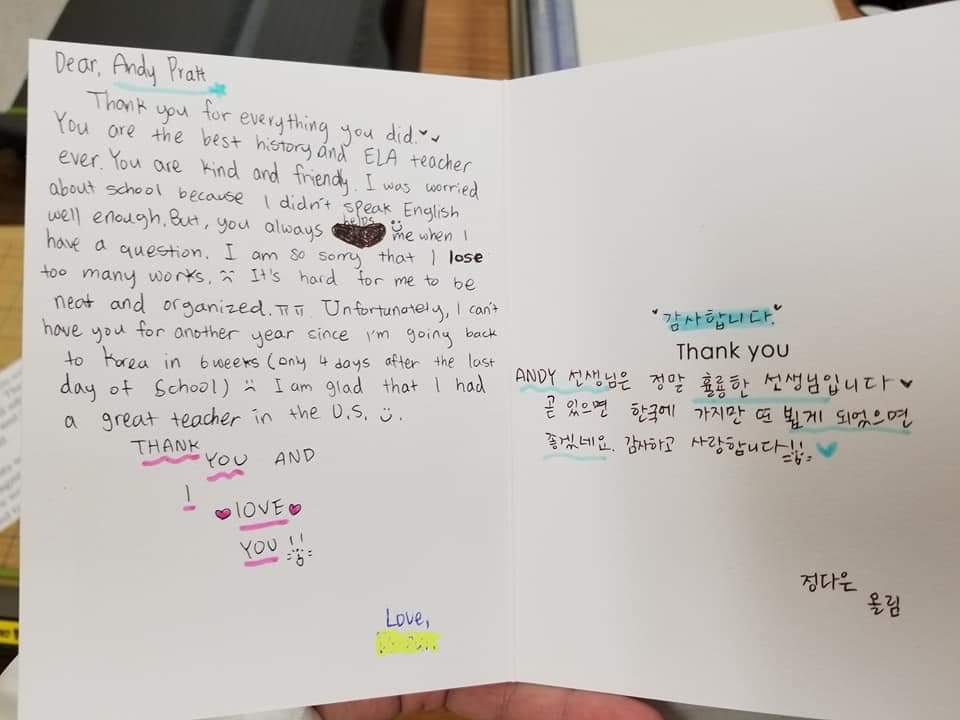 Dear, Andy Pratt
Thank you for everything you did.
You are the best history and ELA teacher
ever. You are kind and friendly. I was worried
about school because I didn't speak English
well enough. But, you always helps me when I
have a question. I am so sorry that I lose
too many works. It's hard for me to be
neat and organized. ㅠㅠ Unfortunately, I can't
have you for another year since I'm going back
to Korea in 6 weeks (only 4 days after the last
day of School) I am glad that I had
a great teacher in the U.S.
THANK
YOU AND
I
LOVE
YOU !!
Love,
"감사합니다."
Thank you
ANDY 선생님은 정말 훌륭한 선생님입니다
곧 있으면 한국에 가지만 또 뵙게 되었으면
좋겠네요. 감사하고 사랑합니다!!
정다은
올림